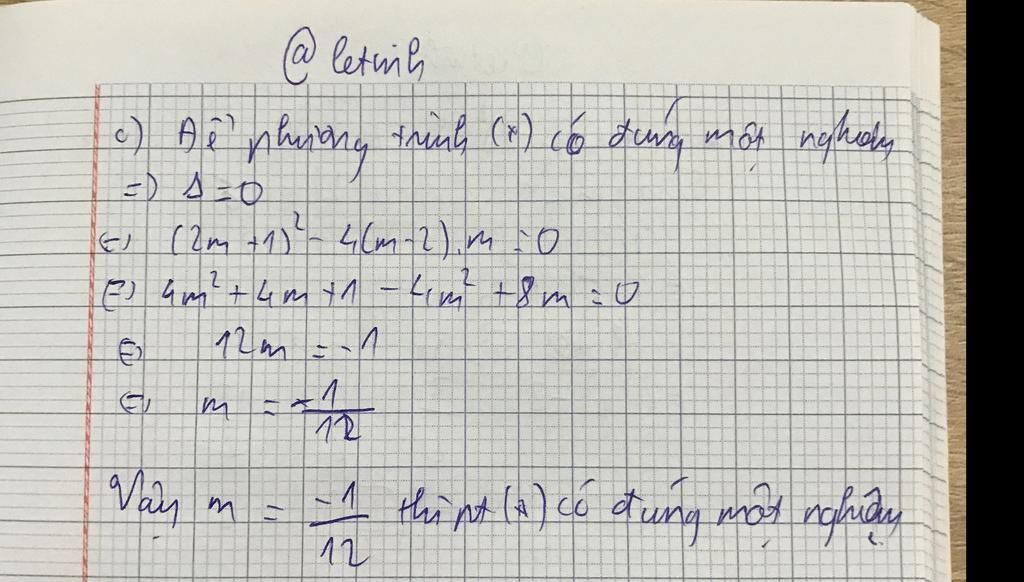 @ letinh
c) Để phương trình (*) có đúng một nghiệm
=> Δ = 0
<=> (2m + 1)² - 4(m - 2).m = 0
<=> 4m² + 4m + 1 - 4m² + 8m = 0
<=> 12m = -1
<=> m = -1/12
Vậy m = -1/12 thì pt (*) có đúng một nghiệm